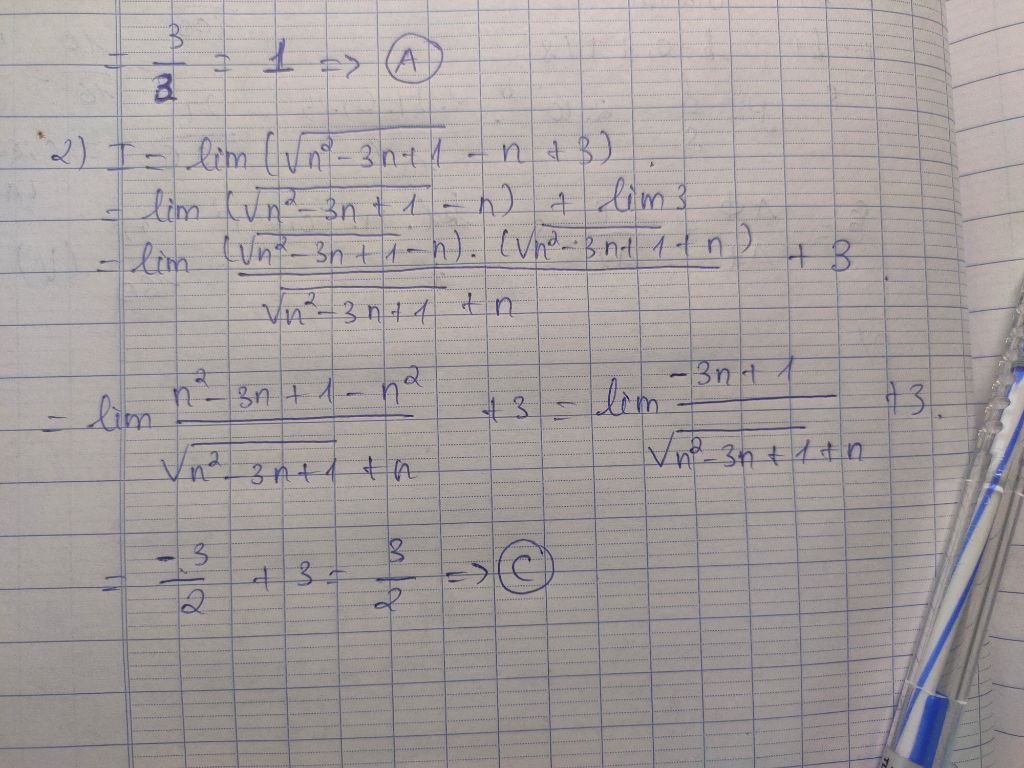 = 3/3 = 1 => (A)
2) I = lim (√(n² - 3n + 1) - n + 3)
= lim (√(n² - 3n + 1) - n) + lim 3
= lim ((√(n² - 3n + 1) - n). (√(n² - 3n + 1) + n))/(√(n² - 3n + 1) + n) + 3
= lim (n² - 3n + 1 - n²)/(√(n² - 3n + 1) + n) + 3 = lim (-3n + 1)/(√(n² - 3n + 1) + n) + 3.
= -3/2 + 3 = 3/2 => (C)